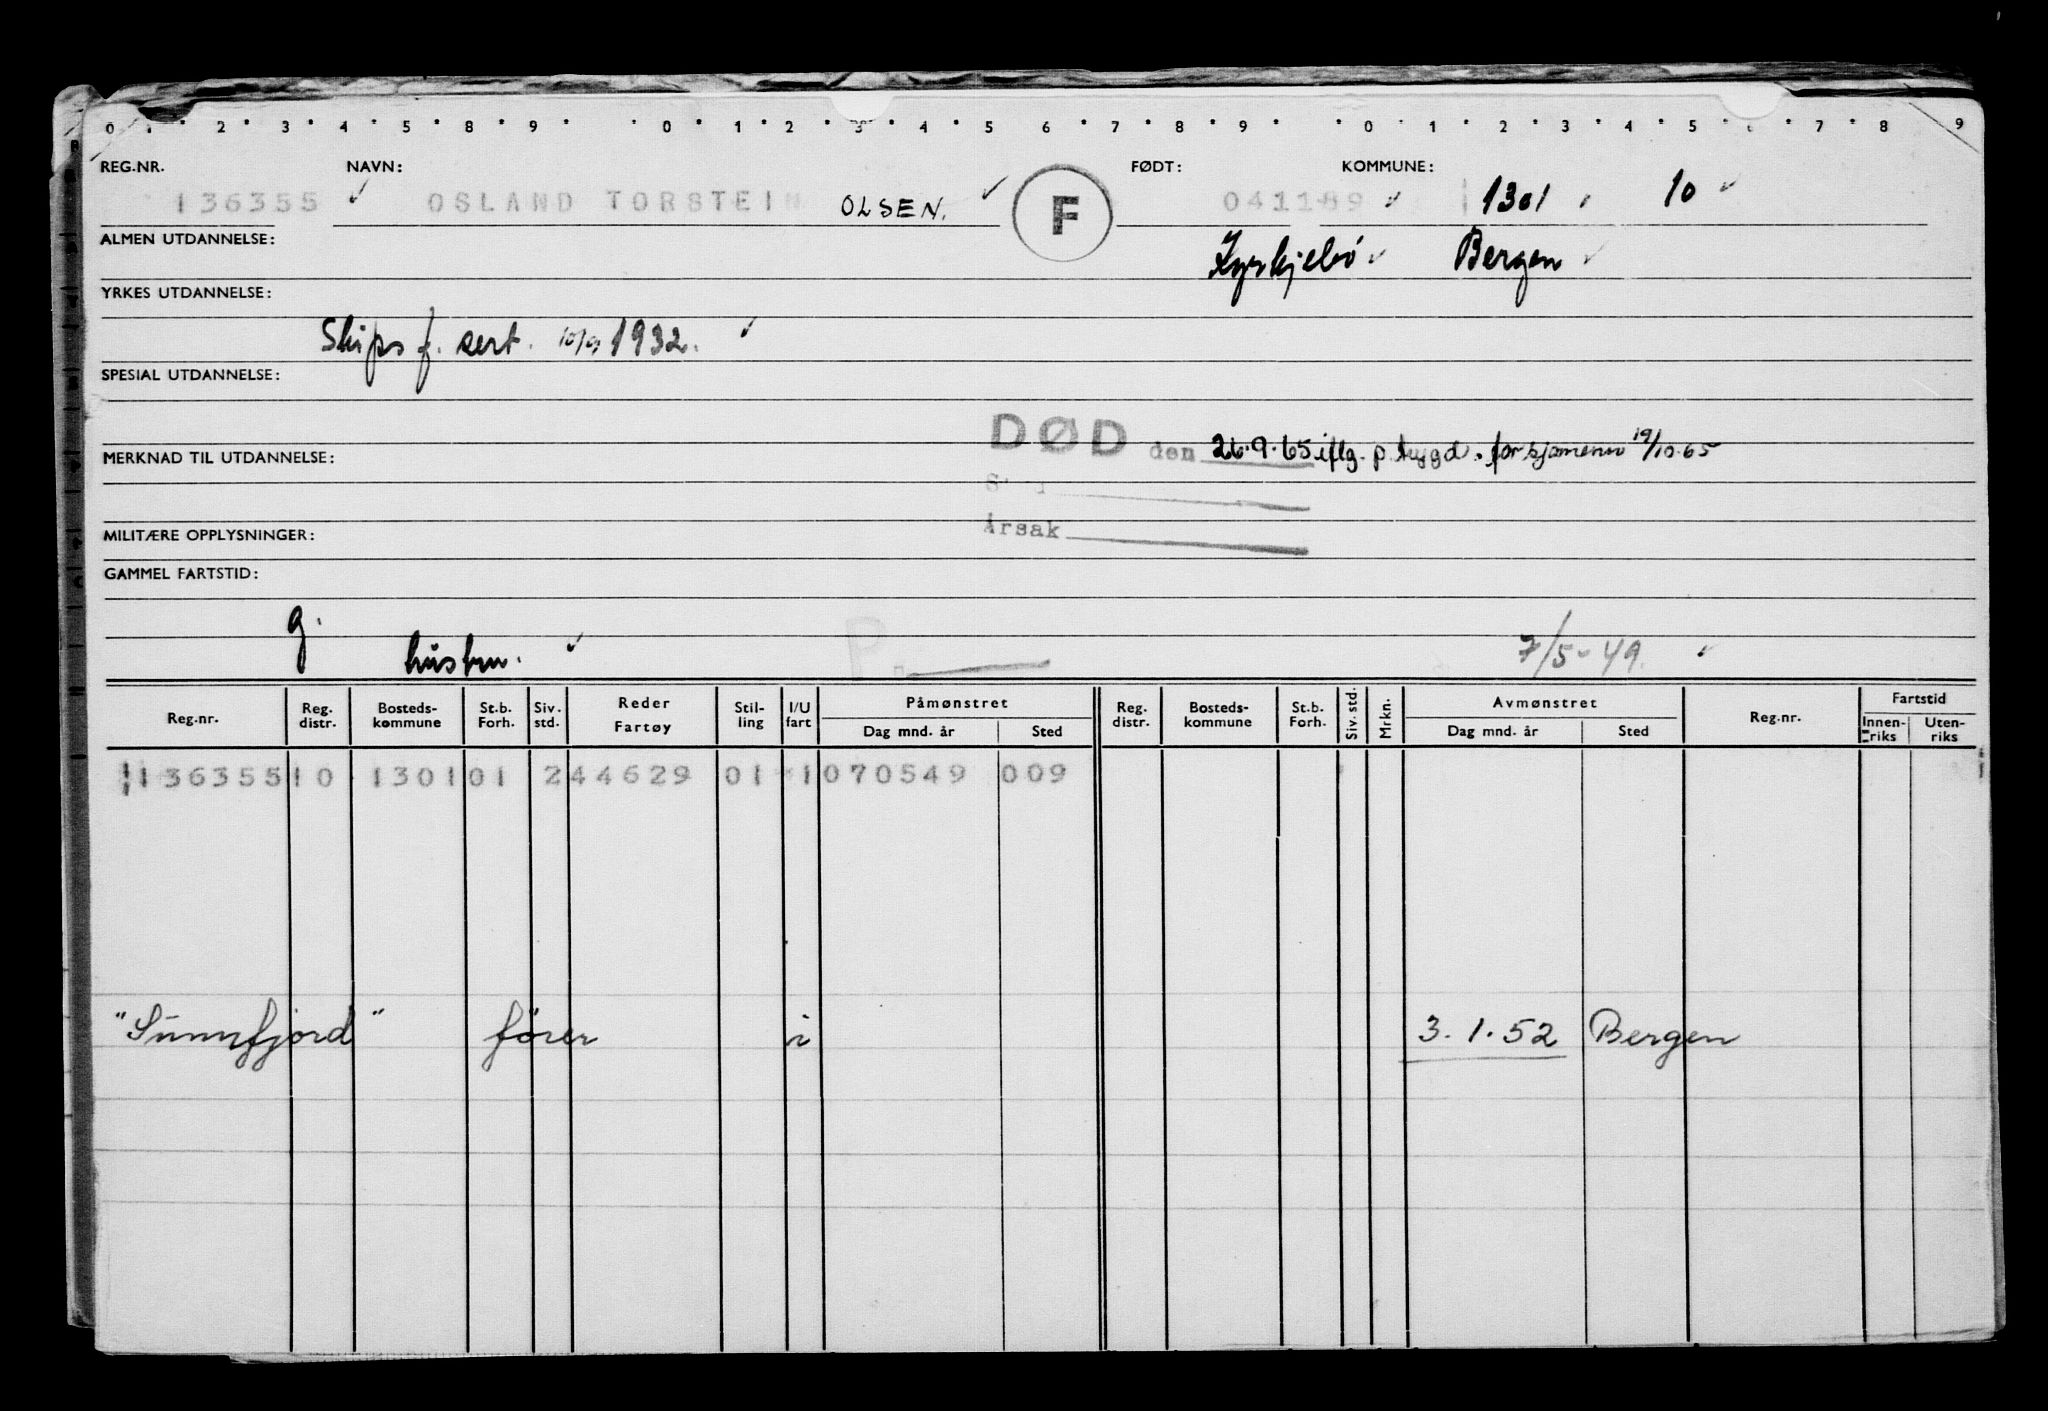 0 1 2 3 4 5 8 9 0 1 2 3 4 5 6 7 8 9 0 1 2 3 4 5 6 7 8 9
REG.NR. NAVN: FØDT: KOMMUNE:
136355 OSLAND TORSTEIN OLSEN. F 041189 1301 10
ALMEN UTDANNELSE: Kyrkjebö Bergen
YRKES UTDANNELSE:
Skips f. sert. 1932.
SPESIAL UTDANNELSE:
DØD den 26.9.65 iflg. p. trygd. for sjømenn 19/10.65
MERKNAD TIL UTDANNELSE:
Årsak
MILITÆRE OPPLYSNINGER:
GAMMEL FARTSTID:
g.
hustru. P. 7/5-49.
Reg.nr. Reg. distr. Bosteds-kommune St.b. Forh. Siv. std. Reder Fartøy Stil-ling I/U fart Påmønstret Dag mnd. år Sted Reg. distr. Bosteds-kommune St.b. Forh. Siv. std. Mrkn. Avmønstret Dag mnd. år Sted Reg.nr. Fartstid Innen-riks Uten-riks
136355 10 1301 01 2 44629 01 1 070549 009
"Sunnfjord" förer i 3.1.52 Bergen